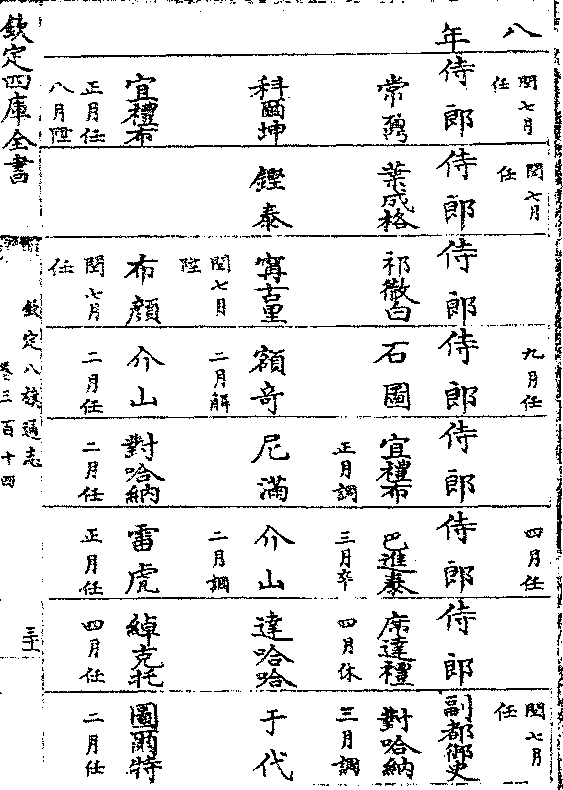 八
年
閏七月
任
侍郎
常
科爾坤
宜禮布
正月任
八月陞
閏七月
任
侍郎
葉成格
鏗泰
侍郎
祁徹白
甯古里
閏七月
陞
布顏
閏七月
任
九月任
侍郎
石圖
額奇
二月解
介山
二月任
侍郎
宜禮布
正月調
尼滿
對哈納
二月任
四月任
侍郎
巴進泰
三月卒
介山
二月調
雷虎
正月任
侍郎
席達禮
四月休
達哈哈
綽克托
四月任
閏七月
任
副都御史
對哈納
三月調
于代
圖爾特
二月任
欽定四庫全書
欽定八旗通志
卷三百十四